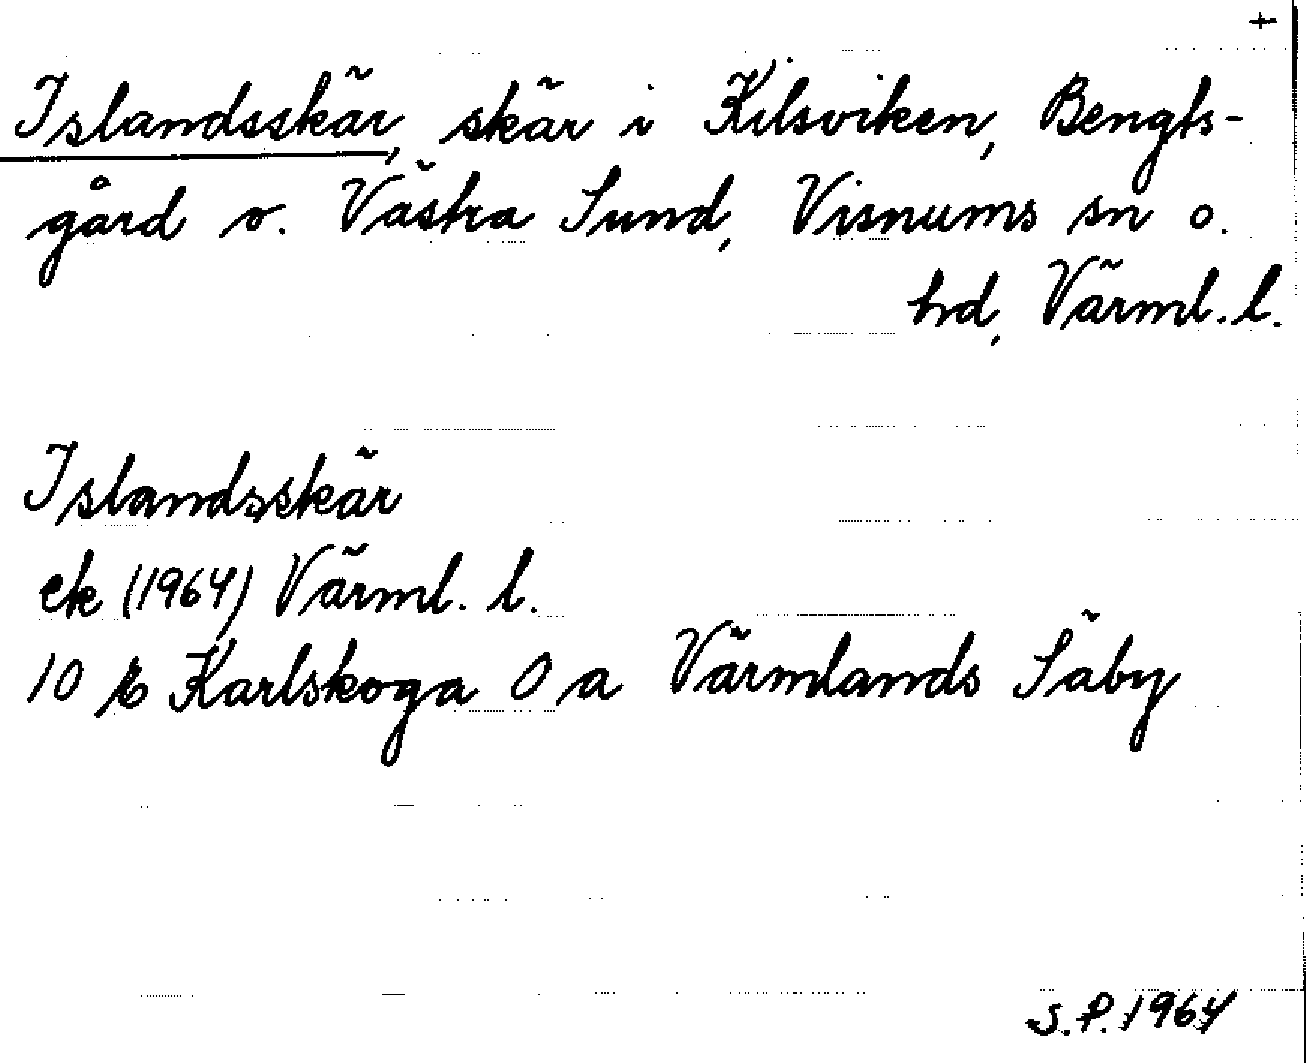 +
Islandsskär, skär i Kilsviken, Bengts-
gård o. Västra Sund, Visnums sn o.
hd, Värml. l.
Islandsskär
ek (1964) Värml. l.
10 E Karlskoga O a Värmlands Säby
S.P. 1964